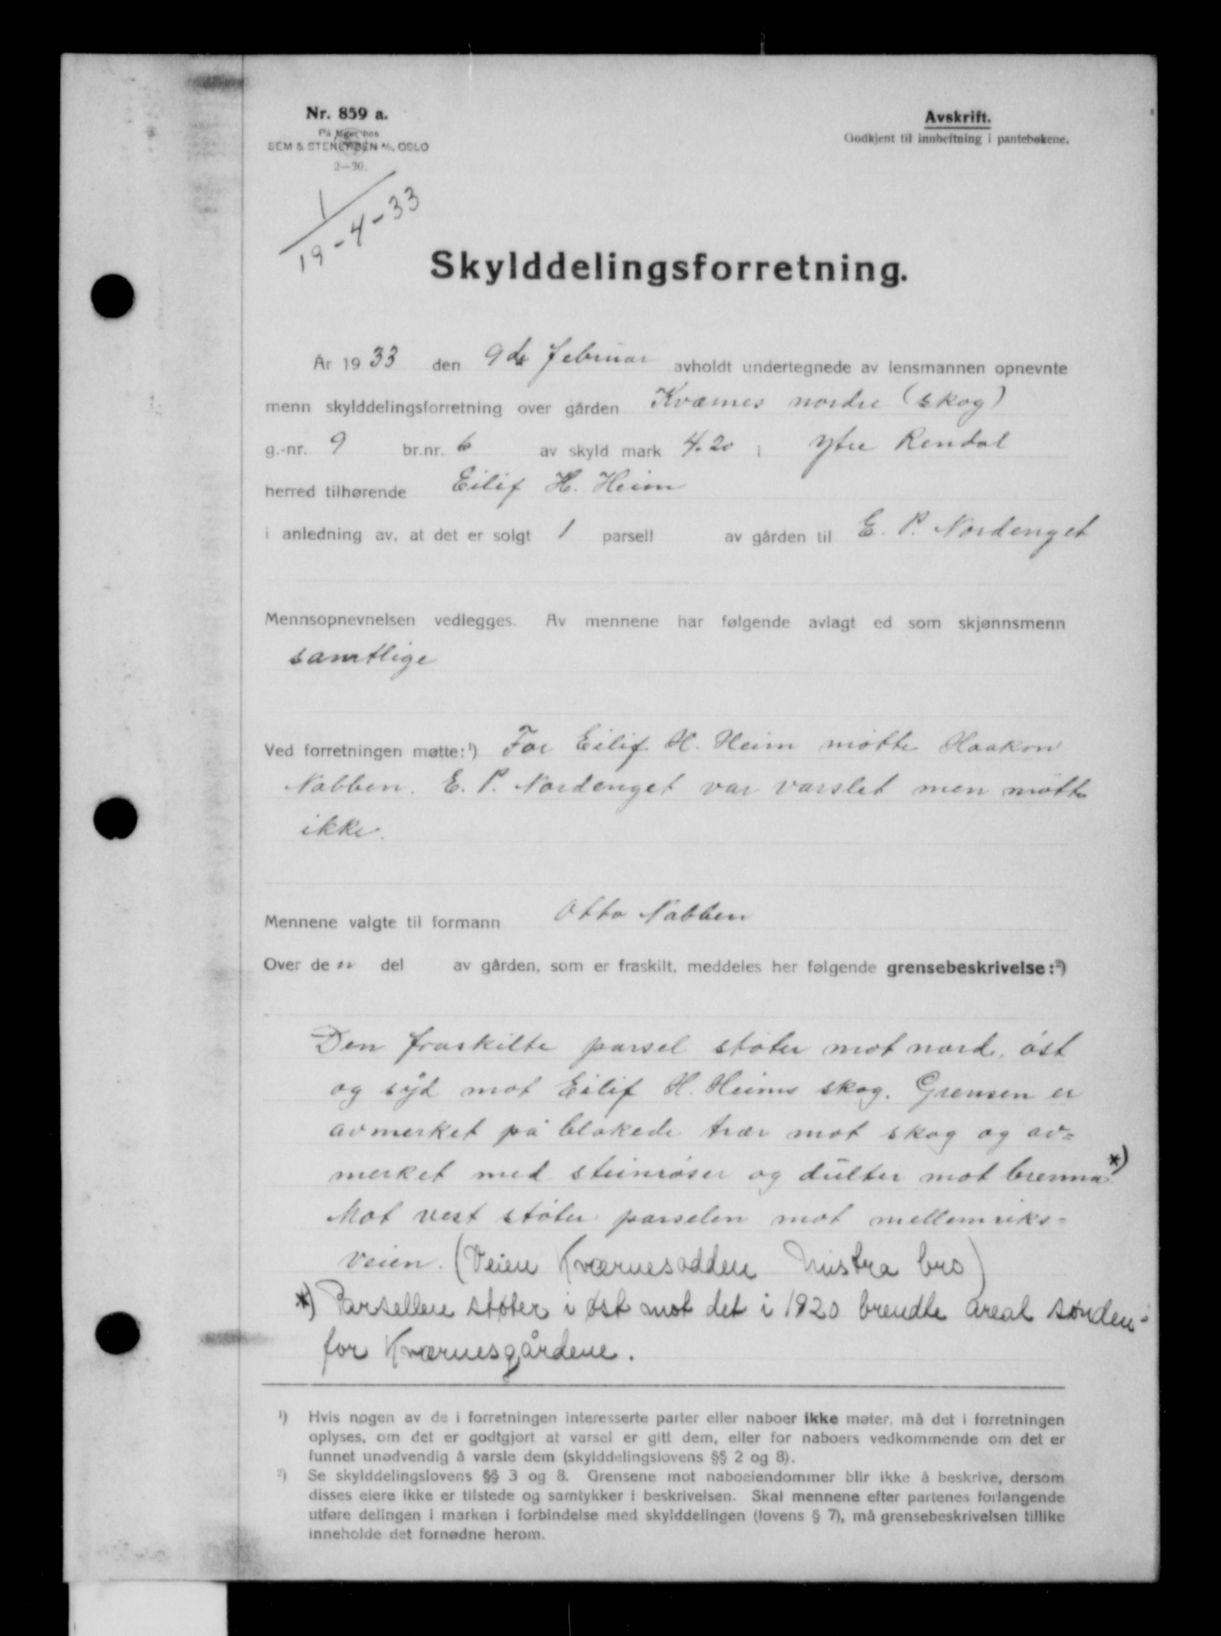 Nr. 859 a.
På lager hos
SEM & STENERSEN A/S, OSLO
2—30.
Avskrift.
Godkjent til innheftning i pantebøkene.
1
19-4-33
Skylddelingsforretning.
År 1933 den 9de februar avholdt undertegnede av lensmannen opnevnte
menn skylddelingsforretning over gården Kværnes nordre (skog)
g.-nr. 9 br.nr. 6 av skyld mark 4.20 i Ytre Rendal
herred tilhørende Eilif H. Heim
i anledning av, at det er solgt 1 parsell av gården til E. P. Nordenget
Mennsopnevnelsen vedlegges. Av mennene har følgende avlagt ed som skjønnsmenn
samtlige
Ved forretningen møtte:¹) For Eilif H. Heim møtte Haakon
Nabben. E. P. Nordenget var varslet men møtte
ikke.
Mennene valgte til formann Otto Nabben
Over den del av gården, som er fraskilt, meddeles her følgende grensebeskrivelse:²)
Den fraskilte parsel støter mot nord, øst
og syd mot Eilif H. Heims skog. Grensen er
avmerket på blekede trær mot skog og av=
merket med steinrøser og dulter mot brenna *)
Mot vest støter parselen mot mellemriks=
veien. (Veien Kværnesodden Mistra bro)
*) Parsellen støter i øst mot det i 1920 brendte areal sønden=
for Kværnesgårdene.
¹) Hvis nogen av de i forretningen interesserte parter eller naboer ikke møter, må det i forretningen
oplyses, om det er godtgjort at varsel er gitt dem, eller for naboers vedkommende om det er
funnet unødvendig å varsle dem (skylddelingslovens §§ 2 og 8).
²) Se skylddelingslovens §§ 3 og 8. Grensene mot naboeiendommer blir ikke å beskrive, dersom
disses eiere ikke er tilstede og samtykker i beskrivelsen. Skal mennene efter partenes forlangende
utføre delingen i marken i forbindelse med skylddelingen (lovens § 7), må grensebeskrivelsen tillike
inneholde det fornødne herom.